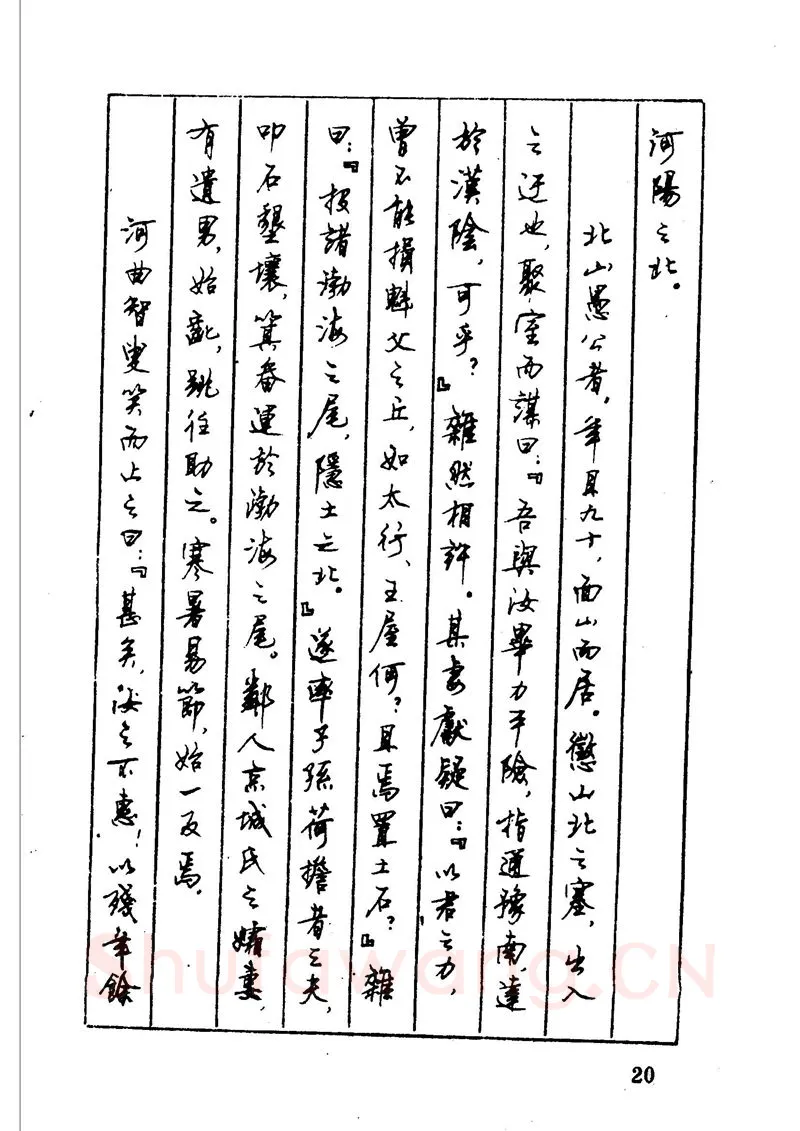 河陽之北。
北山愚公者，年且九十，面山而居。懲山北之塞，出入
之迂也，聚室而謀曰：『吾與汝畢力平險，指通豫南，達
於漢陰，可乎？』雜然相許。其妻獻疑曰：『以君之力，
曾不能損魁父之丘，如太行、王屋何？且焉置土石？』雜
曰：『投諸渤海之尾，隱土之北。』遂率子孫荷擔者三夫，
叩石墾壤，箕畚運於渤海之尾。鄰人京城氏之孀妻，
有遺男，始齔，跳往助之。寒暑易節，始一反焉。
河曲智叟笑而止之曰：『甚矣，汝之不惠！以殘年餘
Shufawang.CN
20